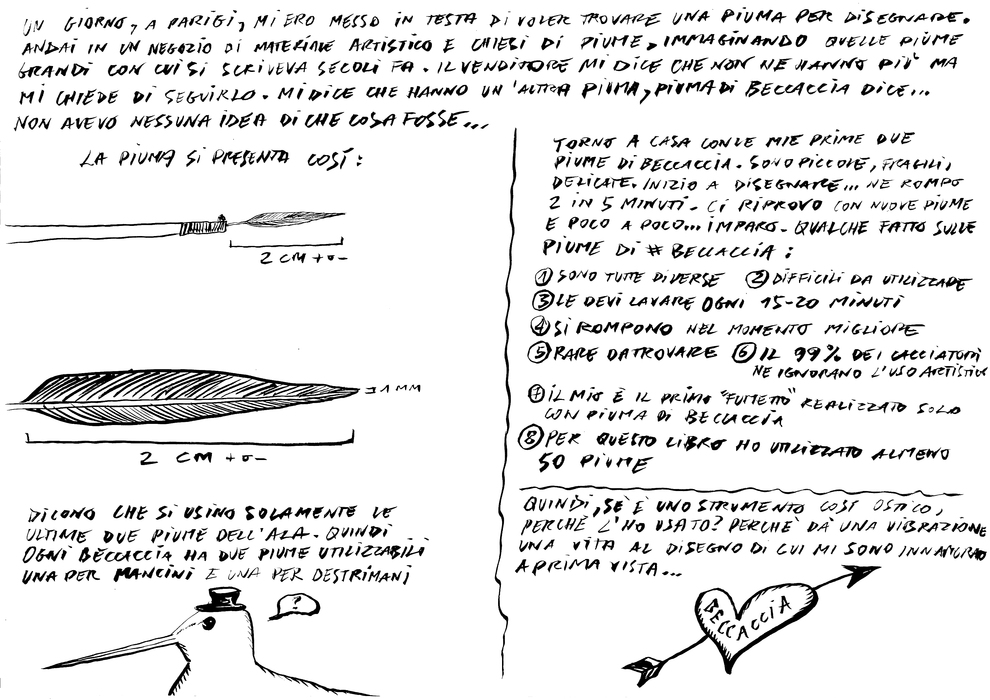 UN GIORNO, A PARIGI, MI ERO MESSO IN TESTA DI VOLER TROVARE UNA PIUMA PER DISEGNARE.
ANDAI IN UN NEGOZIO DI MATERIALE ARTISTICO E CHIESI DI PIUME, IMMAGINANDO QUELLE PIUME
GRANDI CON CUI SI SCRIVEVA SECOLI FA. IL VENDITORE MI DICE CHE NON NE HANNO PIÙ MA
MI CHIEDE DI SEGUIRLO. MI DICE CHE HANNO UN'ALTRA PIUMA, PIUMA DI BECCACCIA DICE...
NON AVEVO NESSUNA IDEA DI CHE COSA FOSSE...
LA PIUMA SI PRESENTA COSÍ:
2 CM + o -
1 MM
2 CM + o -
DICONO CHE SI USINO SOLAMENTE LE
ULTIME DUE PIUME DELL'ALA. QUINDI
OGNI BECCACCIA HA DUE PIUME UTILIZZABILI
UNA PER MANCINI E UNA PER DESTRIMANI
?
TORNO A CASA CON LE MIE PRIME DUE
PIUME DI BECCACCIA. SONO PICCOLE, FRAGILI,
DELICATE. INIZIO A DISEGNARE... NE ROMPO
2 IN 5 MINUTI. CI RIPROVO CON NUOVE PIUME
E POCO A POCO... IMPARO. QUALCHE FATTO SULLE
PIUME DI # BECCACCIA:
1 SONO TUTTE DIVERSE 2 DIFFICILI DA UTILIZZARE
3 LE DEVI LAVARE OGNI 15-20 MINUTI
4 SI ROMPONO NEL MOMENTO MIGLIORE
5 RARE DA TROVARE 6 IL 99% DEI CACCIATORI
NE IGNORANO L'USO ARTISTICO
7 IL MIO È IL PRIMO "FUMETTO" REALIZZATO SOLO
CON PIUMA DI BECCACCIA
8 PER QUESTO LIBRO HO UTILIZZATO ALMENO
50 PIUME
QUINDI, SE È UNO STRUMENTO COSÍ OSTICO,
PERCHÈ L'HO USATO? PERCHÈ DÀ UNA VIBRAZIONE
UNA VITA AL DISEGNO DI CUI MI SONO INNAMORATO
A PRIMA VISTA...
BECCACCIA